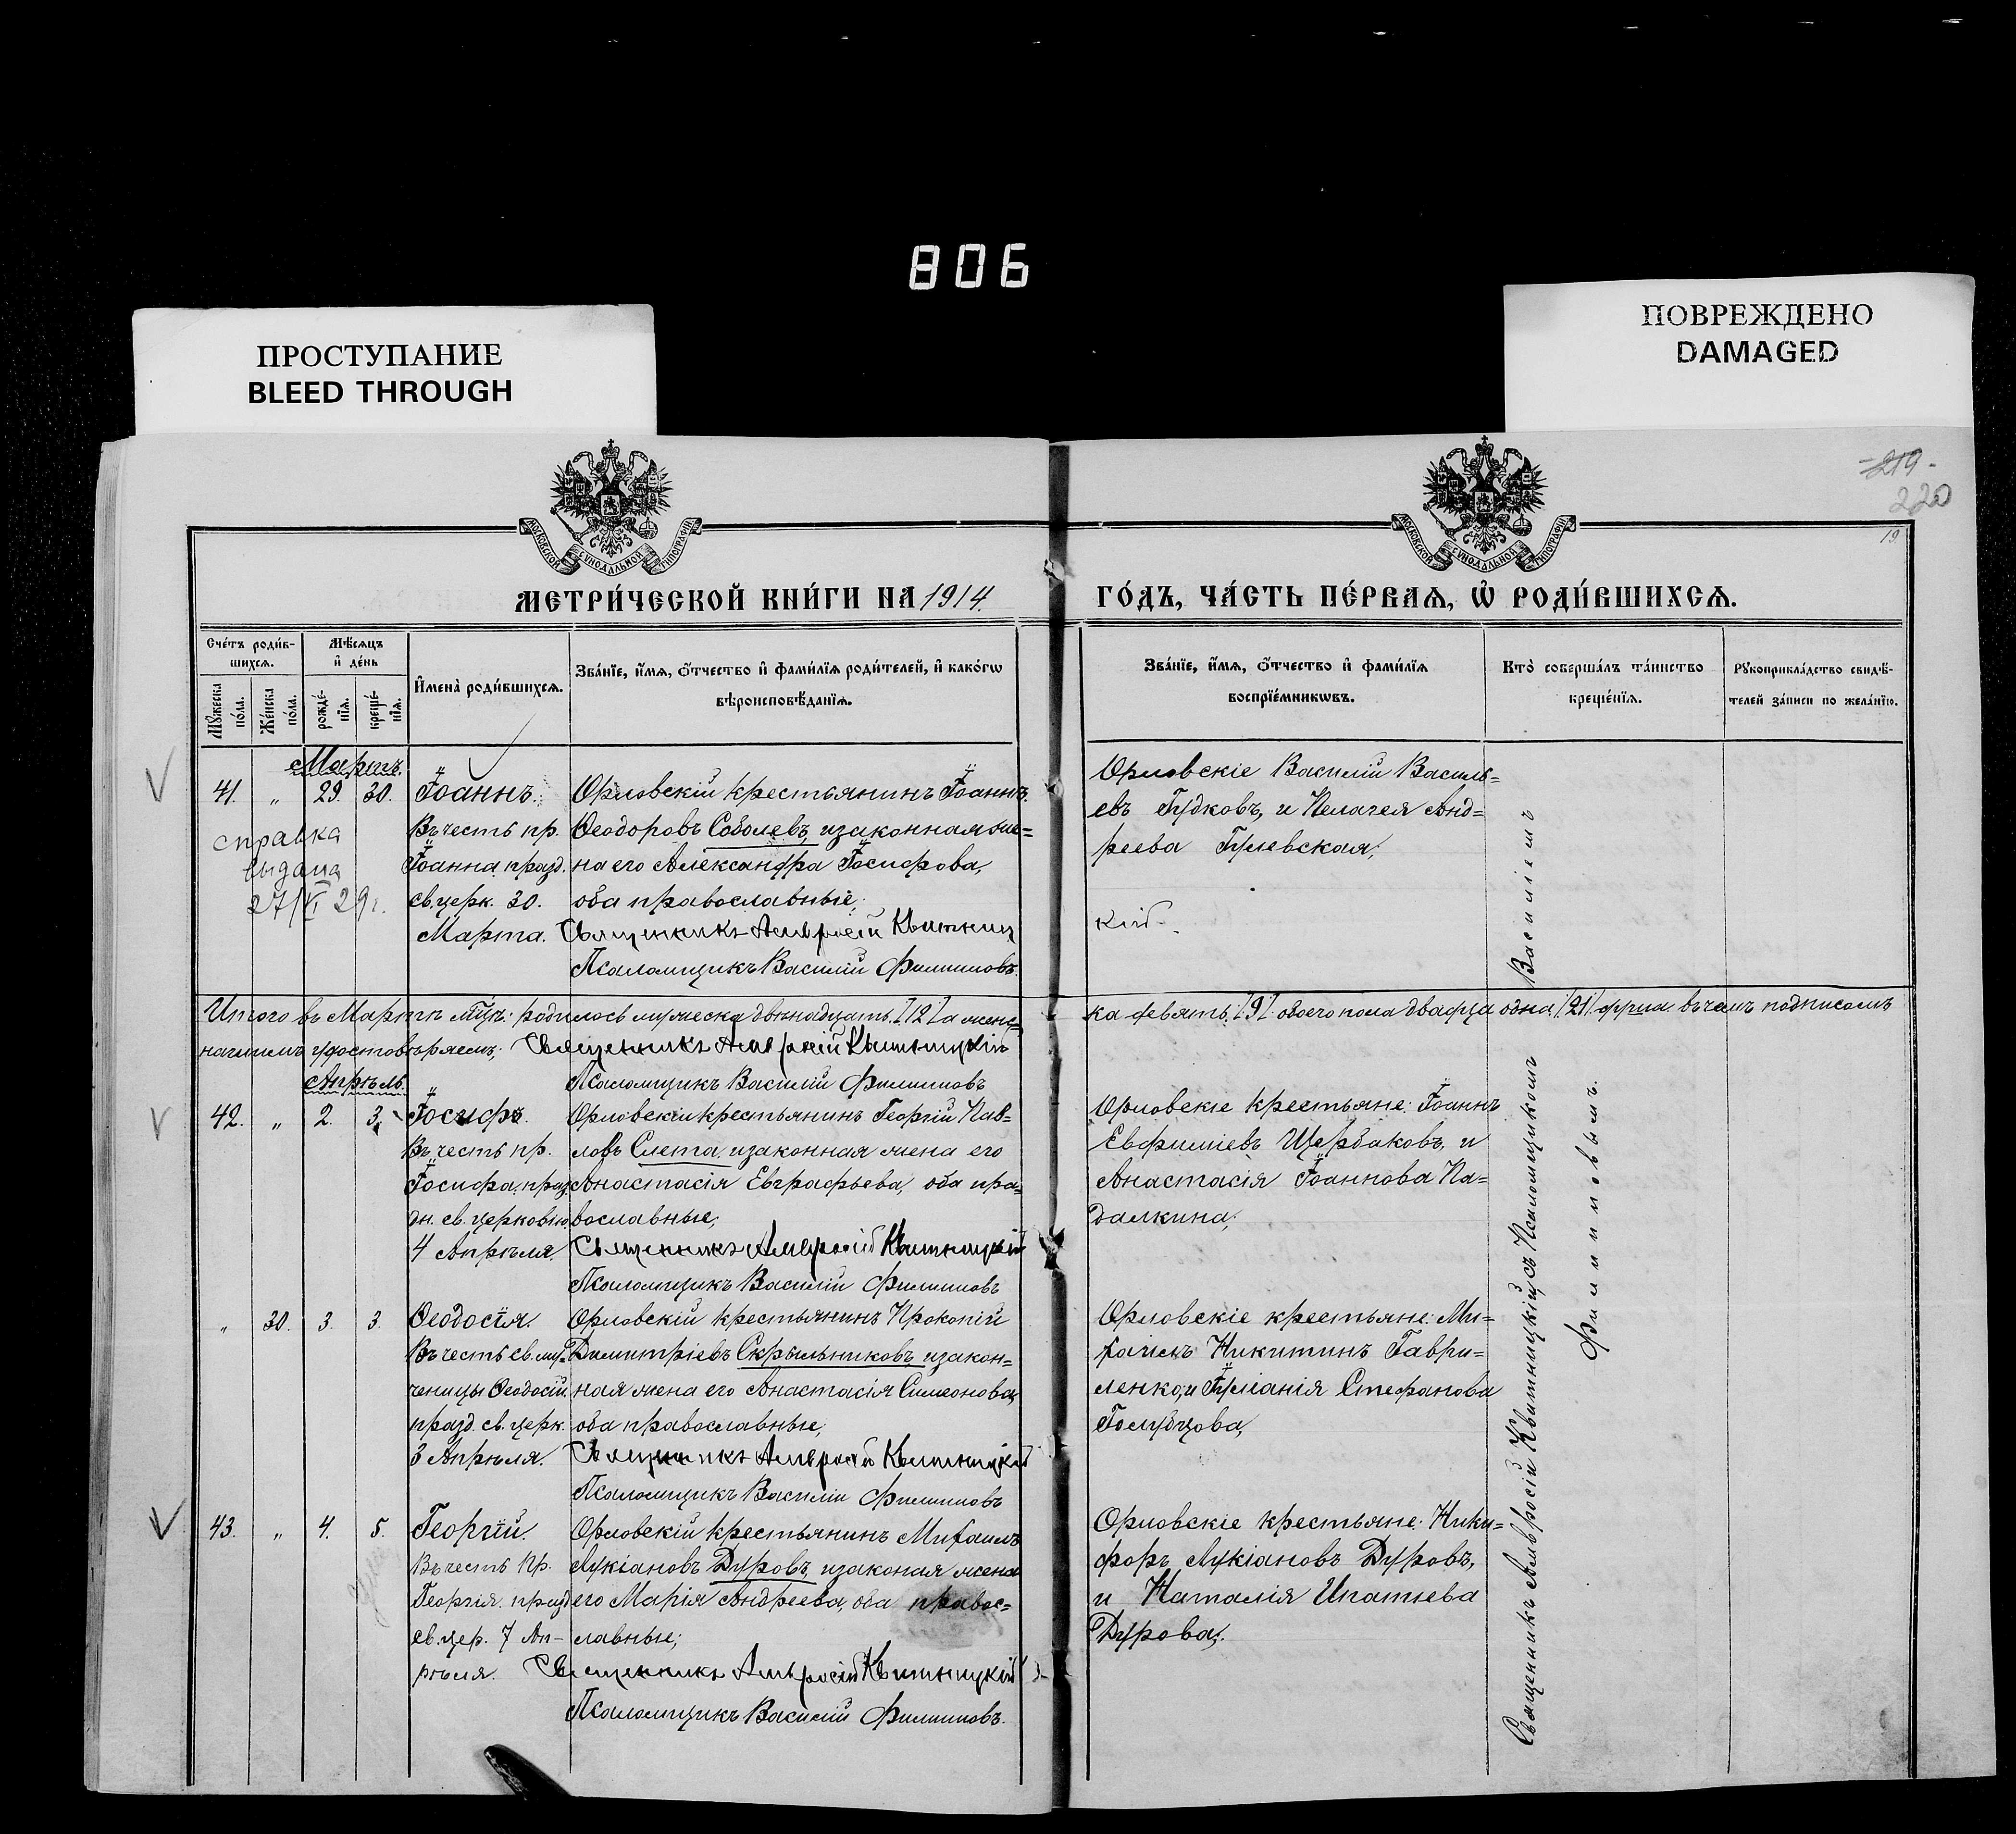 806
ПРОСТУПАНИЕ
BLEED THROUGH
ПОВРЕЖДЕНО
DAMAGED
219
220
19
МОСКОВСКОЙ СѴНОДАЛЬНОЙ ТИПОГРАФІИ
МОСКОВСКОЙ СѴНОДАЛЬНОЙ ТИПОГРАФІИ
МЕТРИ́ЧЕСКОЙ КНИ́ГИ НА 1914.
ГО́ДЪ, ЧА́СТЬ ПЕ́РВАѦ, Ѡ҆ РОДИ́ВШИХСѦ.
Сче́тъ роди́в-
шихсѧ.
Мꙋ́жеска по́ла.
Же́нска по́ла.
Мѣ́сѧцъ
и҆ де́нь
рожде́-
нїѧ.
креще́-
нїѧ.
И҆мена̀ роди́вшихсѧ.
Зва́нїе, и҆́мѧ, ѻ҆́тчество и҆ фами́лїѧ роди́телей, и҆ како́гѡ
вѣроисповѣ́данїѧ.
Зва́нїе, и҆́мѧ, ѻ҆́тчество и҆ фами́лїѧ
воспрїе́мникѡвъ.
Кто̀ соверша́лъ та́инство
креще́нїѧ.
Рꙋкоприкла́дство свидѣ́-
телей за́писи по жела́нїю.
Мартъ.
41. „ 29. 30.
справка
выдана
27/VI 29г.
Іоаннъ.
Въ честь пр.
Іоанна празд.
св. церк. 30.
Марта.
Орловскій крестьянинъ Іоаннъ
Ѳеодоровъ Соболевъ, и законная же=
на его Александра Іосифова,
оба православные;
Священникъ Амвросій Квитниц
кій
Псаломщикъ Василій Филиповъ.
Орловскіе Василій Василь=
евъ Гудковъ, и Пелагея Анд=
реева
Итого въ Мартѣ м-цѣ: родилось мужеска двѣнадцать /12/ а женс=
ка девять /9/ обоего пола двадца одна /21/ душа. въ чемъ подписомъ
нашимъ удостовѣряемъ; Священникъ Амвросій Квитницкій
Псаломщикъ Василій Филиповъ
Апрѣль.
42. „ 2. 3.
Іосифъ.
Въ честь пр.
Іосифа, праз.
дн. св. церковію
4 Апрѣля.
Орловскій крестьянинъ Георгій Пав=
ловъ Слета, и законная жена его
Анастасія Евграфьева, оба пра=
вославные;
Священникъ Амвросій Квитницкій
Псаломщикъ Василій Филиповъ
Орловскіе крестьяне: Іоаннъ
Евфиміевъ Щербаковъ, и
Анастасія Іоаннова Па=
далкина;
„ 30. 3. 3.
Ѳеодосія.
Въ честь св. му-
ченицы Ѳеодосіи
празд. св. церк.
3 Апрѣля.
Орловскій крестьянинъ Прокопій
Димитріевъ Скрыльниковъ и закон=
ная жена его Анастасія Симеонова,
оба православные;
Священникъ Амвросій Квитницкій
Псаломщикъ Василій Филиповъ
Орловскіе крестьяне: Ми=
хаилъ Никитинъ Гаври=
ленко, и Іуліанія Стефанова
Голубцова,
43. „ 4. 5.
Георгій.
Въ честь пр.
Георгія. празд
св. цер. 7 Ап-
рѣля.
Орловскій крестьянинъ Михаилъ
Лукіановъ Дуровъ, и законая жена
его Марія Андреева, оба правос=
лавные;
Священникъ Амвросій Квитницкій
Псаломщикъ Василій Филиповъ.
Орловскіе крестьяне: Ники=
форъ Лукіановъ Дуровъ,
и Наталія Ипатьева
Дурова;
Священникъ Амвросій Квитницкій съ Псаломщикомъ Василіемъ
Филиповымъ.